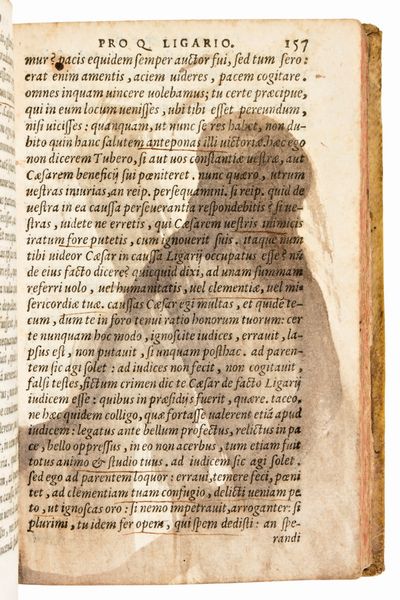 PRO Q. LIGARIO. 157
mur? pacis equidem semper auctor fui, sed tum sero:
erat enim amentis, aciem uideres, pacem cogitare.
omnes inquam uincere uolebamus; tu certe præcipue,
qui in eum locum uenisses, ubi tibi esset pereundum,
nisi uicisses: quanquam, ut nunc se res habet, non du-
bito quin hanc salutem anteponas illi uictoriæ. hæc ego
non dicerem Tubero, si aut uos constantiæ uestræ, aut
Cæsarem beneficij sui pœniteret. nunc quæro, utrum
uestras iniurias, an reip. persequamini. si reip. quid de
uestra in ea caussa perseuerantia respondebitis? si ue-
stras, uidete ne erretis, qui Cæsarem uestris inimicis
iratum fore putetis, cum ignouerit suis. itaque num
tibi uideor Cæsar in caussa Ligarij occupatus esse? nũ
de eius facto dicere? quicquid dixi, ad unam summam
referri uolo, uel humanitatis, uel clementiæ, uel mi-
sericordiæ tuæ. caussas Cæsar egi multas, et quidẽ te-
cum, dum te in foro tenuit ratio honorum tuorum: cer
te nunquam hoc modo, ignoscite iudices, errauit, la-
psus est, non putauit, si unquam posthac. ad paren-
tem sic agi solet: ad iudices non fecit, non cogitauit,
falsi testes, fictum crimen. dic te Cæsar de facto Ligarij
iudicem esse: quibus in præsidijs fuerit, quære. taceo.
ne hæc quidem colligo, quæ fortasse ualerent etiã apud
iudicem: legatus ante bellum profectus, relictus in pa
ce, bello oppressus, in eo non acerbus, tum etiam fuit
totus animo & studio tuus. ad iudicem sic agi solet.
sed ego ad parentem loquor: erraui, temere feci, pœni
tet, ad clementiam tuam confugio, delicti ueniam pe
to, ut ignoscas oro: si nemo impetrauit, arroganter: si
plurimi, tu idem fer opem, qui spem dedisti: an spe-
randi